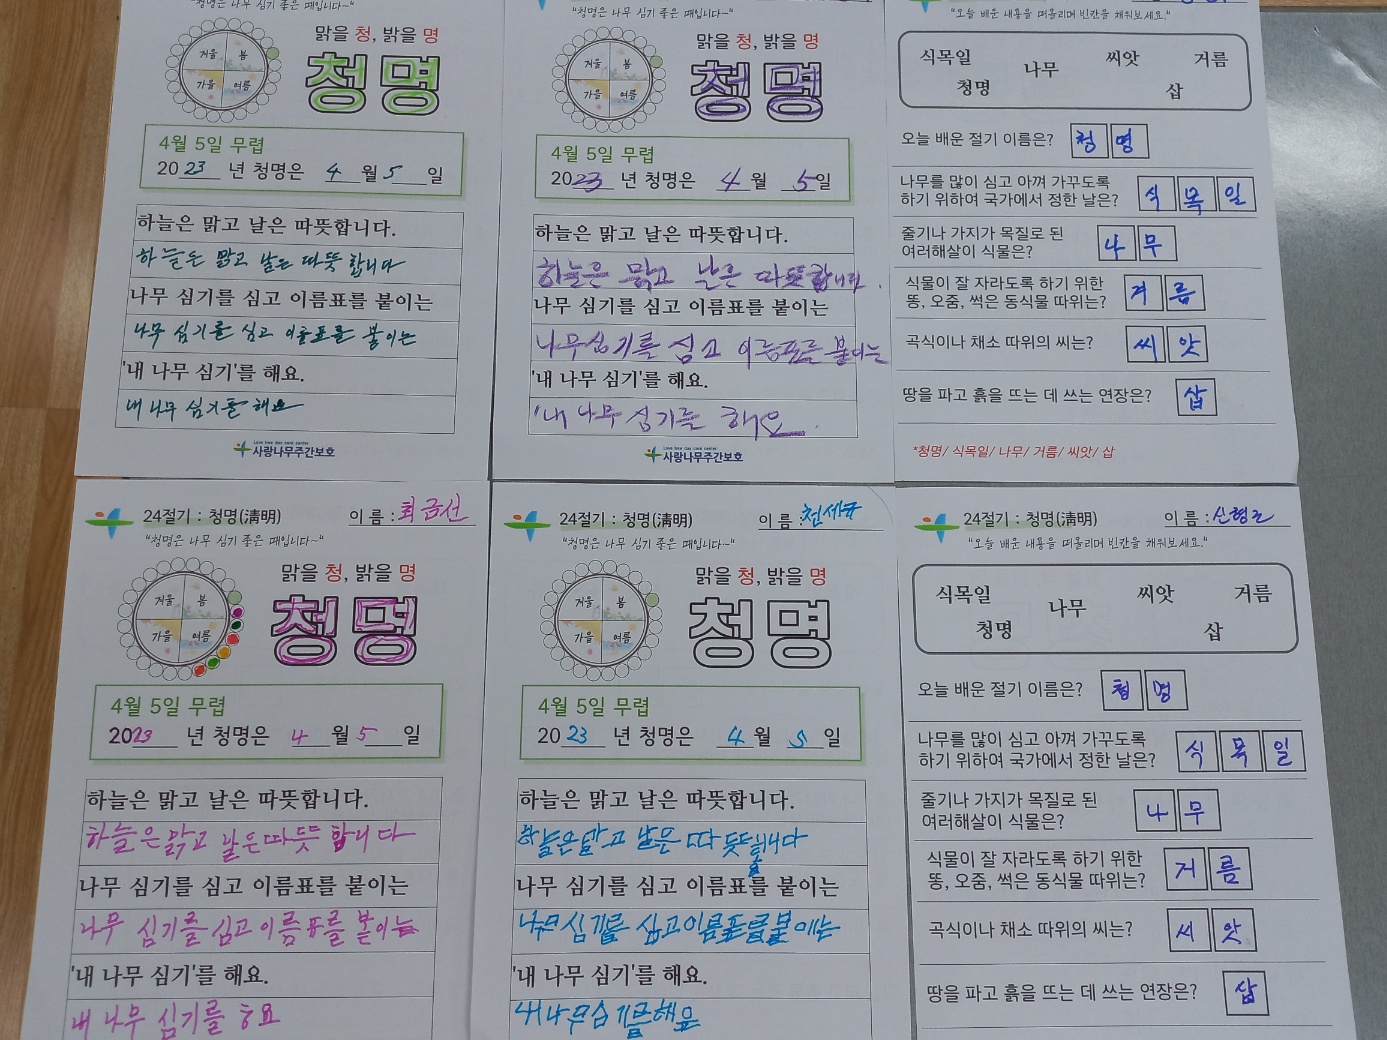 "청명은 나무 심기 좋은 때입니다~"
겨울 봄
가을 여름
맑을 청, 밝을 명
청명
4월 5일 무렵
2023 년 청명은 4 월 5 일
하늘은 맑고 날은 따뜻합니다.
하늘은 맑고 날은 따뜻합니다
나무 심기를 심고 이름표를 붙이는
나무 심기를 심고 이름표를 붙이는
'내 나무 심기'를 해요.
내 나무 심기를 해요
Love tree day care center
사랑나무주간보호
"청명은 나무 심기 좋은 때입니다~"
겨울 봄
가을 여름
맑을 청, 밝을 명
청명
4월 5일 무렵
2023 년 청명은 4 월 5일
하늘은 맑고 날은 따뜻합니다.
하늘은 맑고 날은 따뜻합니다.
나무 심기를 심고 이름표를 붙이는
나무심기를 심고 이름표를 붙이는
'내 나무 심기'를 해요.
'내 나무 심기를 해요.
Love tree day care center
사랑나무주간보호
"오늘 배운 내용을 떠올리며 빈칸을 채워보세요."
식목일 나무 씨앗 거름
청명 삽
오늘 배운 절기 이름은? 청명
나무를 많이 심고 아껴 가꾸도록
하기 위하여 국가에서 정한 날은? 식목일
줄기나 가지가 목질로 된
여러해살이 식물은? 나무
식물이 잘 자라도록 하기 위한
똥, 오줌, 썩은 동식물 따위는? 거름
곡식이나 채소 따위의 씨는? 씨앗
땅을 파고 흙을 뜨는 데 쓰는 연장은? 삽
*청명/ 식목일/ 나무/ 거름/ 씨앗/ 삽
24절기 : 청명(淸明) 이 름 : 최금선
"청명은 나무 심기 좋은 때입니다~"
겨울 봄
가을 여름
맑을 청, 밝을 명
청명
4월 5일 무렵
2023 년 청명은 4 월 5 일
하늘은 맑고 날은 따뜻합니다.
하늘은 맑고 날은따뜻 합니다
나무 심기를 심고 이름표를 붙이는
나무 심기를 심고 이름표를 붙이는
'내 나무 심기'를 해요.
내 나무 심기를 해요
24절기 : 청명(淸明) 이 름 :
"청명은 나무 심기 좋은 때입니다~"
겨울 봄
가을 여름
맑을 청, 밝을 명
청명
4월 5일 무렵
20 23 년 청명은 4 월 5 일
하늘은 맑고 날은 따뜻합니다.
하늘은맑고 날은 따뜻합니다
나무 심기를 심고 이름표를 붙이는
나무심기를 심고이름표를붙이는
'내 나무 심기'를 해요.
내나무심기를해요
24절기 : 청명(淸明) 이 름 :
"오늘 배운 내용을 떠올리며 빈칸을 채워보세요."
식목일 나무 씨앗 거름
청명 삽
오늘 배운 절기 이름은? 청명
나무를 많이 심고 아껴 가꾸도록
하기 위하여 국가에서 정한 날은? 식목일
줄기나 가지가 목질로 된
여러해살이 식물은? 나무
식물이 잘 자라도록 하기 위한
똥, 오줌, 썩은 동식물 따위는? 거름
곡식이나 채소 따위의 씨는? 씨앗
땅을 파고 흙을 뜨는 데 쓰는 연장은? 삽